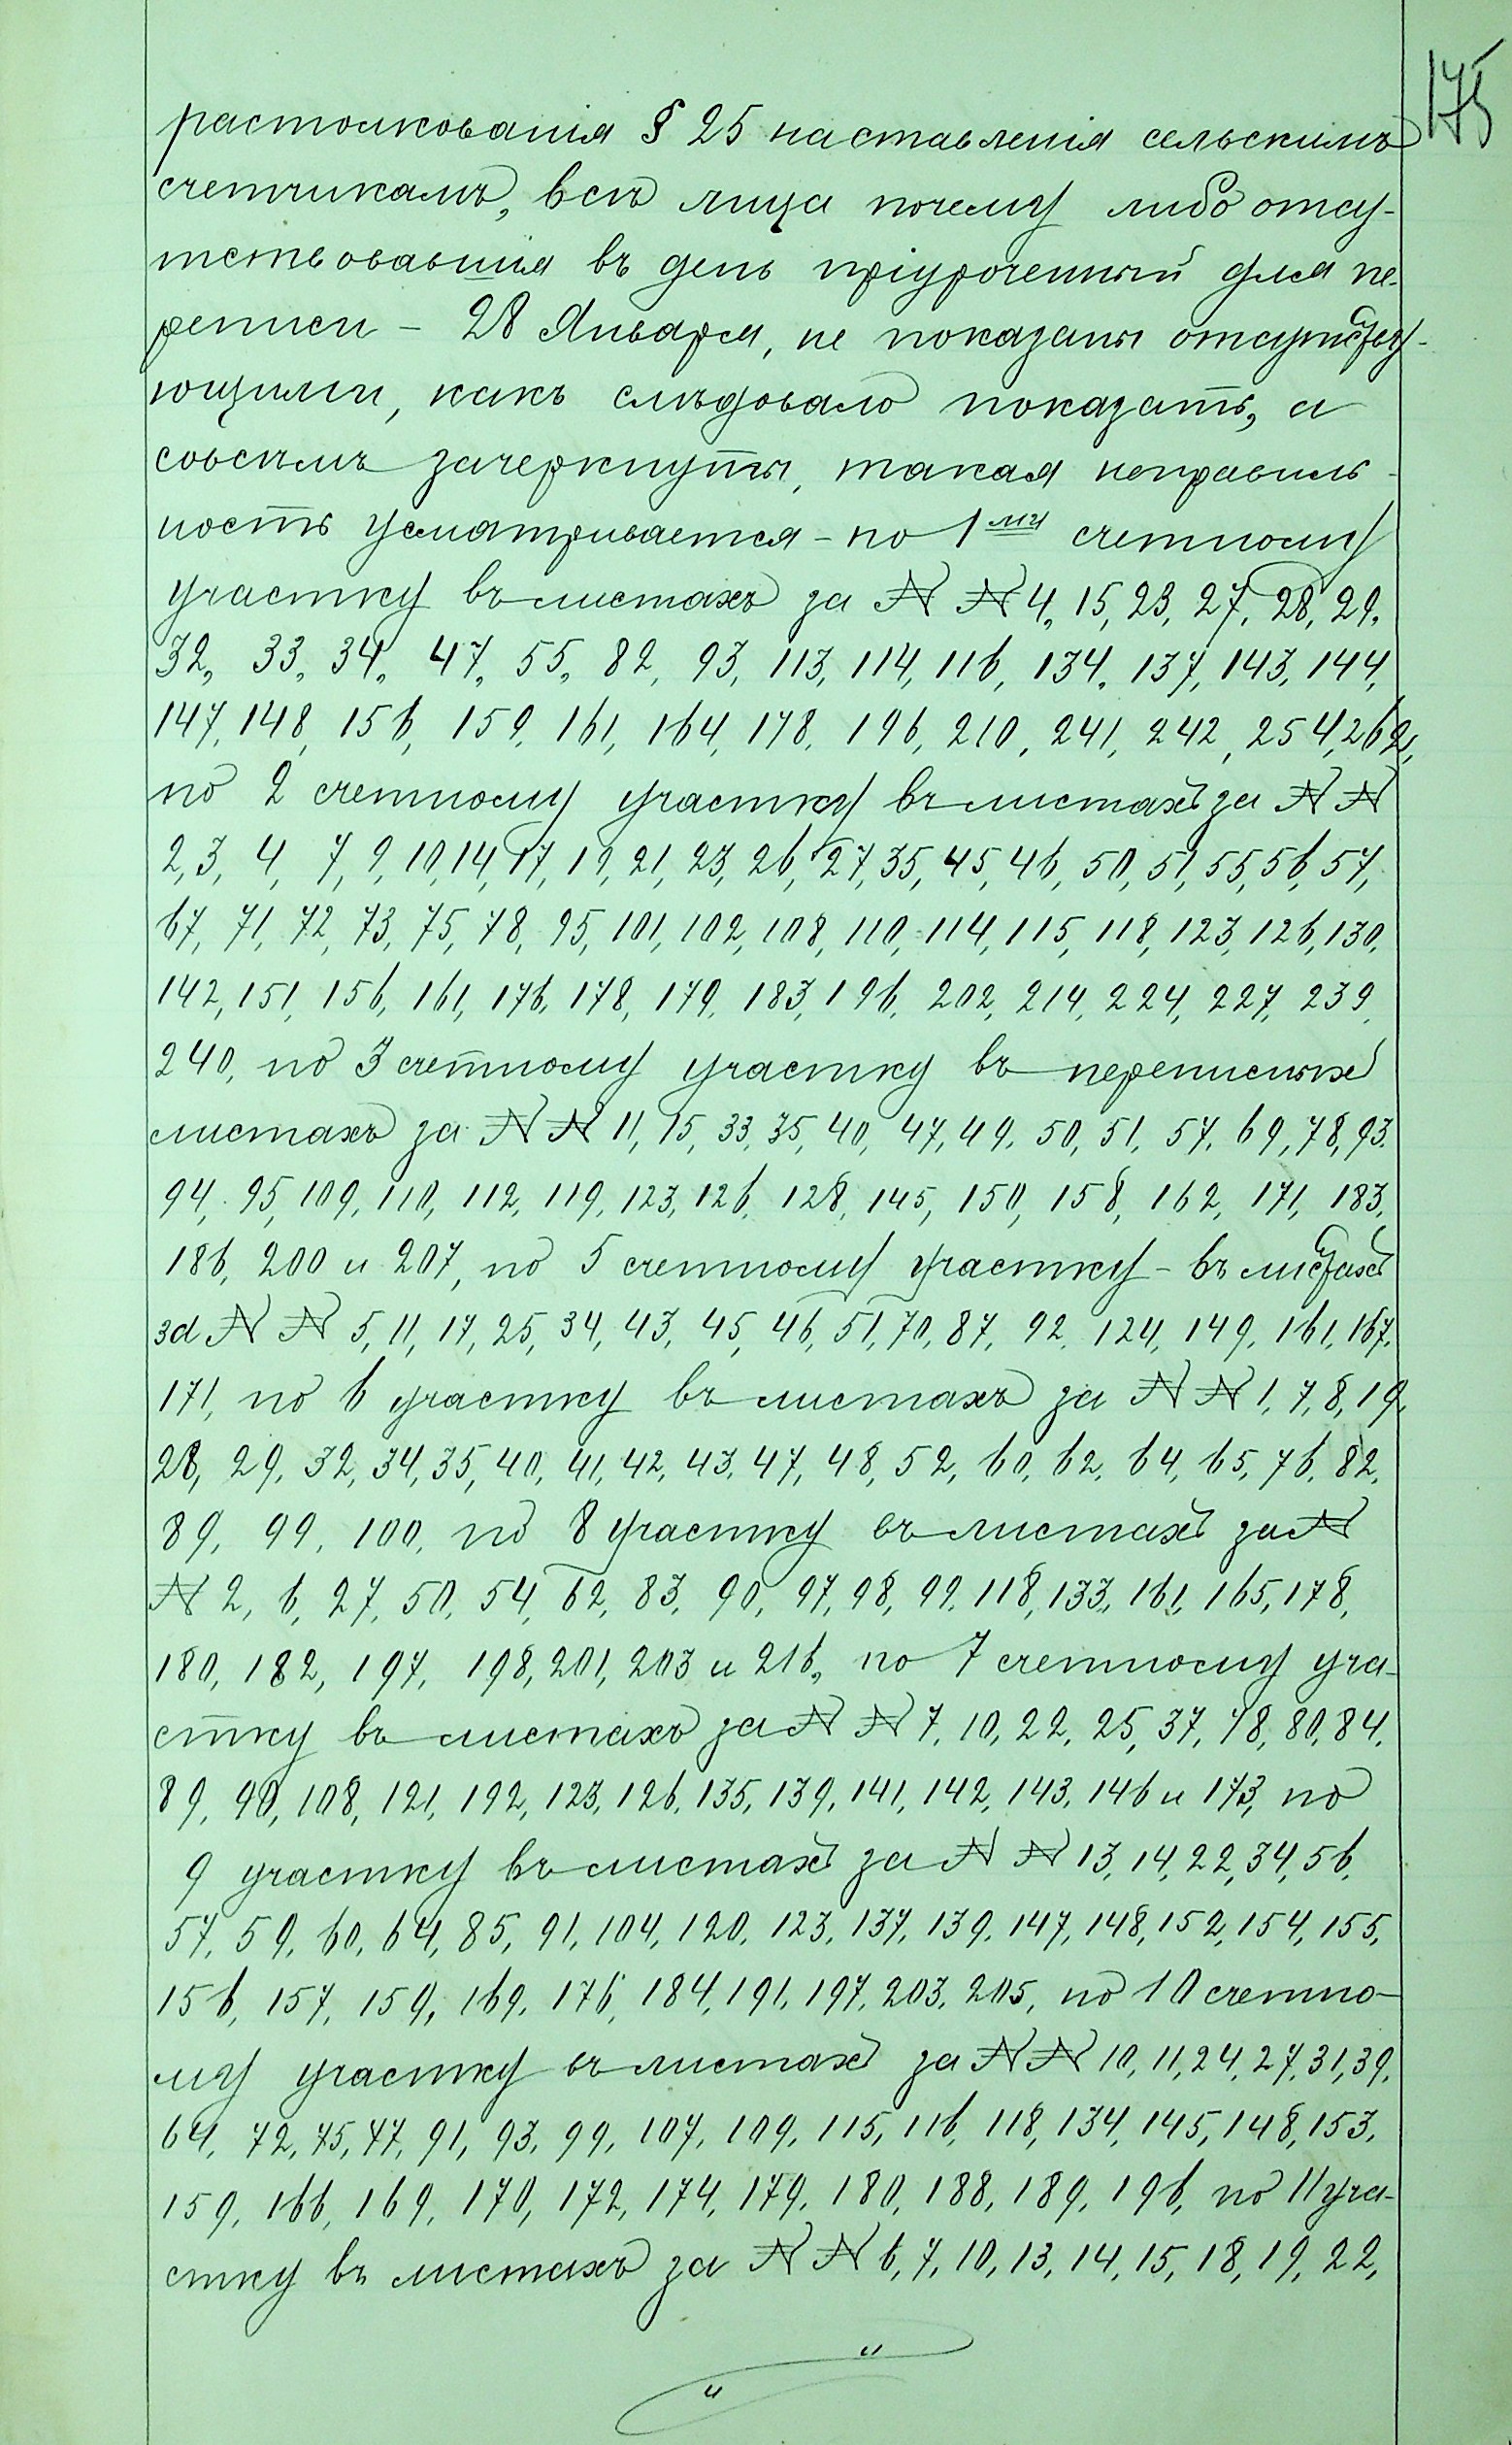 175
растолкованія § 25 наставленія сельскимъ
счетчикамъ, всѣ лица почему либо отсу-
тствовавшія въ день пріуроченный для пе-
реписи - 28 Января, не показаны отсутству-
ющими, какъ слѣдовало показать, а
совсѣмъ зачеркнуты, такая неправиль-
ность усматривается - по 1му счетному
участку въ листахъ за N N 4, 15, 23, 27, 28, 29,
32, 33, 34, 47, 55, 82, 93, 113, 114, 116, 134, 137, 143, 144,
147, 148, 156, 159, 161, 164, 178, 196, 210, 241, 242, 254, 262,
по 2 счетному участку въ листахъ за N N
2, 3, 4, 7, 9, 10, 14, 17, 19, 21, 23, 26, 27, 35, 45, 46, 50, 51, 55, 56, 57,
67, 71, 72, 73, 75, 78, 95, 101, 102, 108, 110, 114, 115, 118, 123, 126, 130,
142, 151, 156, 161, 176, 178, 179, 183, 196, 202, 214, 224, 227, 239,
240, по 3 счетному участку въ переписныхъ
листахъ за N N 11, 15, 33, 35, 40, 47, 49, 50, 51, 57, 69, 78, 93,
94, 95, 109, 110, 112, 119, 123, 126, 128, 145, 150, 158, 162, 171, 183,
186, 200 и 207, по 5 счетному участку - въ листахъ
за N N 5, 11, 17, 25, 34, 43, 45, 46, 51, 70, 87, 92, 124, 149, 161, 167,
171, по 6 участку въ листахъ за N N 1, 7, 8, 19,
28, 29, 32, 34, 35, 40, 41, 42, 43, 47, 48, 52, 60, 62, 64, 65, 76, 82,
89, 99, 100, по 8 участку въ листахъ за N
N 2, 6, 27, 50, 54, 62, 83, 90, 97, 98, 99, 118, 133, 161, 165, 178,
180, 182, 197, 198, 201, 203 и 216, по 7 счетному уча-
стку въ листахъ за N N 7, 10, 22, 25, 37, 78, 80, 84,
89, 90, 108, 121, 192, 123, 126, 135, 139, 141, 142, 143, 146 и 173, по
9 участку въ листахъ за N N 13, 14, 22, 34, 56,
57, 59, 60, 64, 85, 91, 104, 120, 123, 137, 139, 147, 148, 152, 154, 155,
156, 157, 159, 169, 176, 184, 191, 197, 203, 205, по 10 счетно-
му участку въ листахъ за N N 10, 11, 24, 27, 31, 39,
64, 72, 75, 77, 91, 93, 99, 107, 109, 115, 116, 118, 134, 145, 148, 153,
159, 166, 169, 170, 172, 174, 179, 180, 188, 189, 196, по 11 уча-
стку въ листахъ за N N 6, 7, 10, 13, 14, 15, 18, 19, 22,